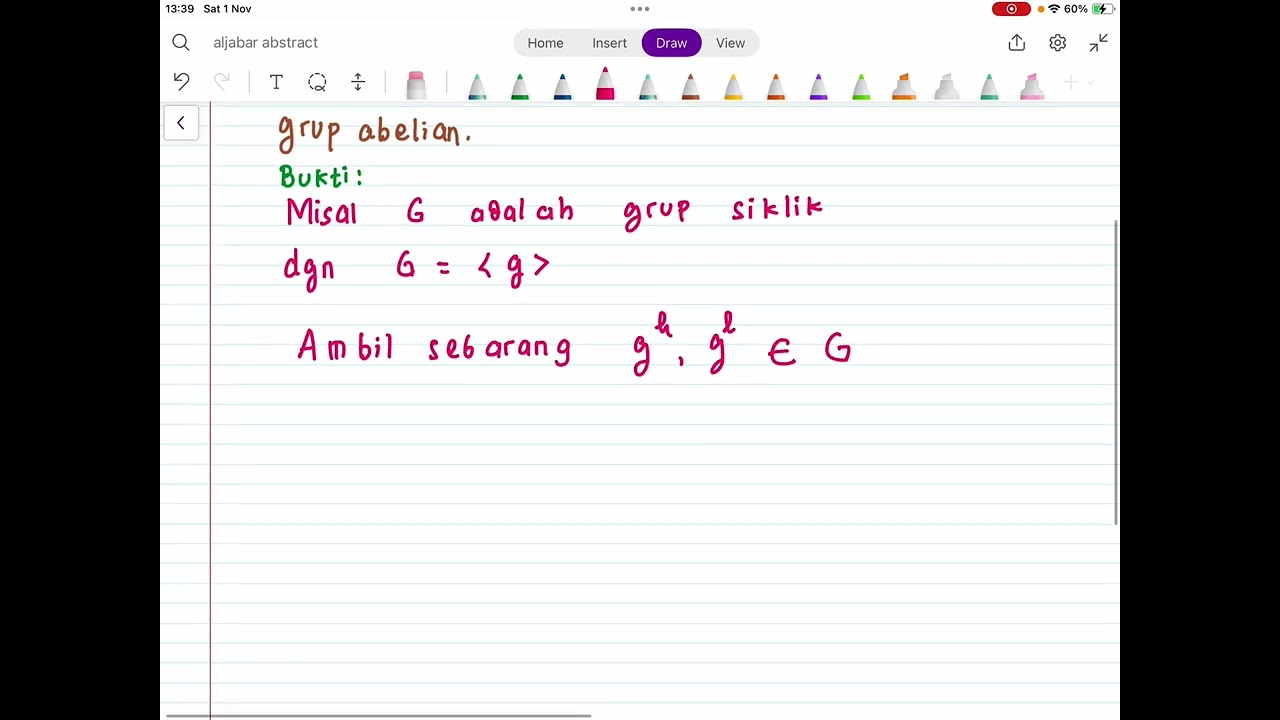 13:39 Sat 1 Nov
60%
aljabar abstract
Home Insert Draw View
T
grup abelian.
Bukti:
Misal G adalah grup siklik
dgn G = < g >
Ambil sebarang gᵏ, gˡ ∈ G